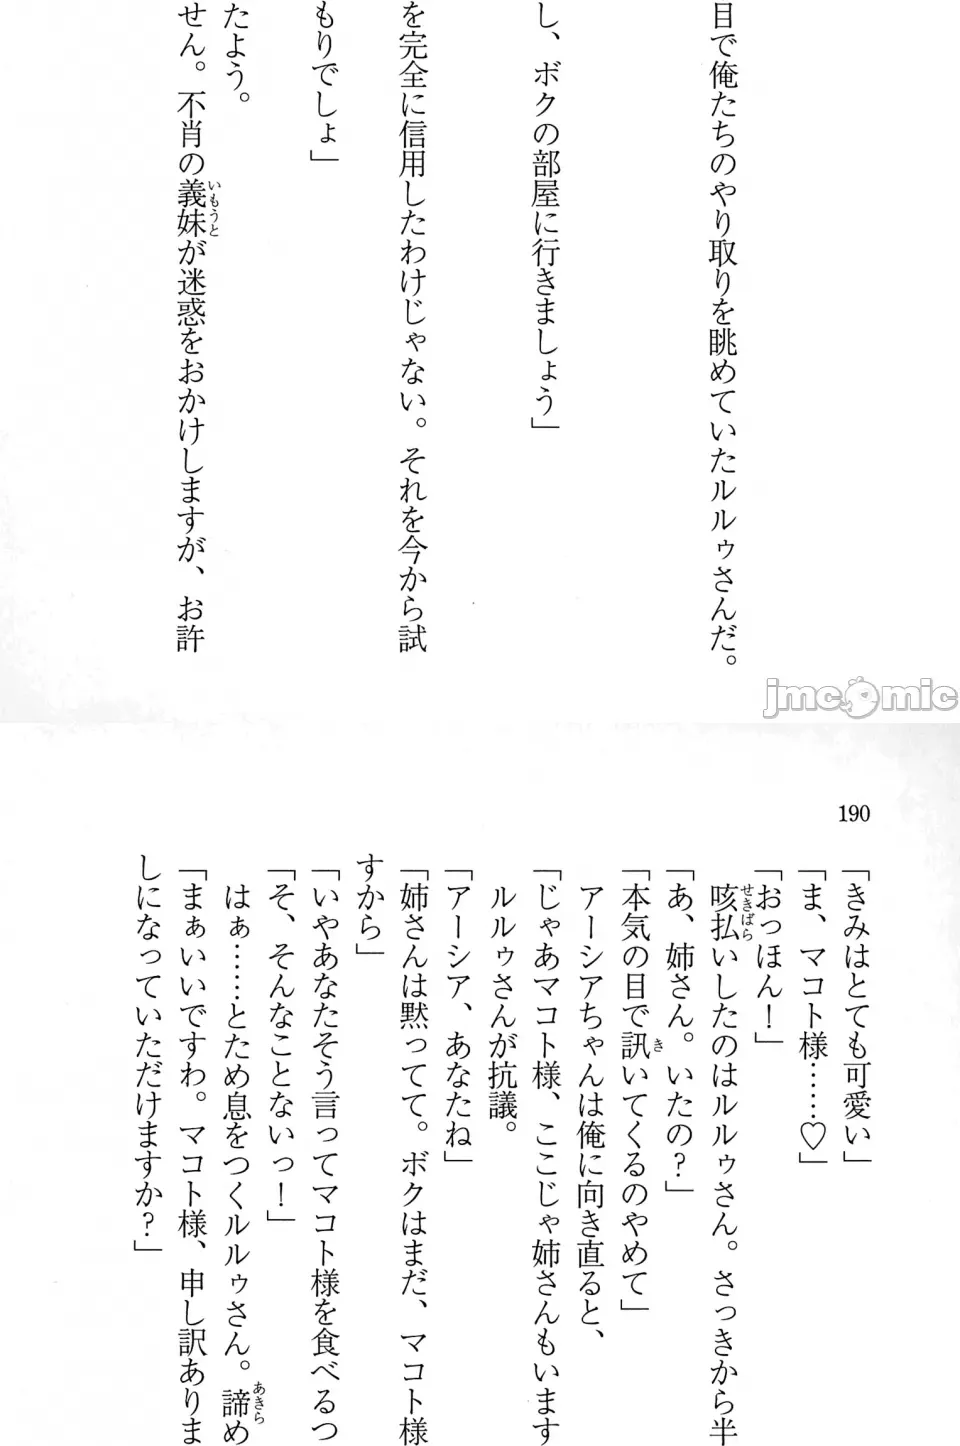 目で俺たちのやり取りを眺めていたルルゥさんだ。
し、ボクの部屋に行きましょう」
を完全に信用したわけじゃない。それを今から試
もりでしょ」
たよう。
いもうと
せん。不肖の義妹が迷惑をおかけしますが、お許
jmcomic
190
「きみはとても可愛い」
「ま、マコト様……♡」
「おっほん！」
せきばら
咳払いしたのはルルゥさん。さっきから半
「あ、姉さん。いたの？」
き
「本気の目で訊いてくるのやめて」
アーシアちゃんは俺に向き直ると、
「じゃあマコト様、ここじゃ姉さんもいます
ルルゥさんが抗議。
「アーシア、あなたね」
「姉さんは黙ってて。ボクはまだ、マコト様
すから」
「いやあなたそう言ってマコト様を食べるつ
「そ、そんなことないっ！」
あきら
はぁ……とため息をつくルルゥさん。諦め
「まぁいいですわ。マコト様、申し訳ありま
しになっていただけますか？」